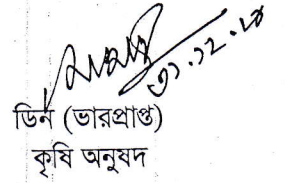 ৩১.১২.১৪
ডিন (ভারপ্রাপ্ত)
কৃষি অনুষদ